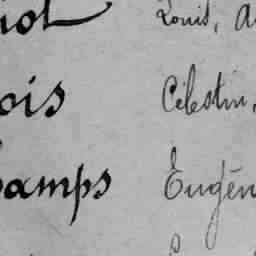 iot Louis, A
ois Célestin,
camps Eugèn